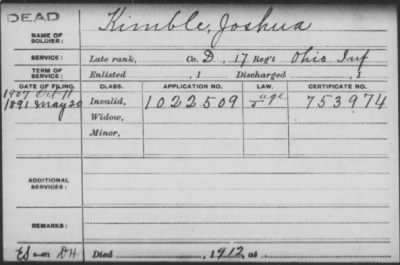 DEAD
NAME OF SOLDIER: Kimble, Joshua
SERVICE: Late rank, Co. D, 17 Reg't Ohio Inf
TERM OF SERVICE: Enlisted , 1 Discharged , 1
DATE OF FILING. CLASS. APPLICATION NO. LAW. CERTIFICATE NO.
1907 Oct 11 age
1891 May 20 Invalid, 1022509 753974
Widow,
Minor,
ADDITIONAL SERVICES:
REMARKS:
Died , 1912, at